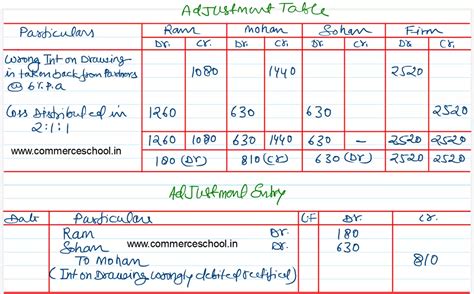 Adjustment Table
Particulars Ram Mohan Sohan Firm
Dr. Cr. Dr. Cr. Dr. Cr. Dr. Cr.
Wrong Int on Drawing
is taken back from Partners
@ 6% P.a 1080 1440 2520
Loss Distributed in
2:1:1 1260 630 630 2520
1260 1080 630 1440 630 - 2520 2520
www.commerceschool.in
180 (Dr.) 810 (Cr) 630 (Dr) 2520 2520
Adjustment Entry
Date Particulars LF Dr. Cr.
Ram Dr. 180
Sohan www.commerceschool.in Dr. 630
To Mohan 810
(Int on Drawing wrongly debited rectified)